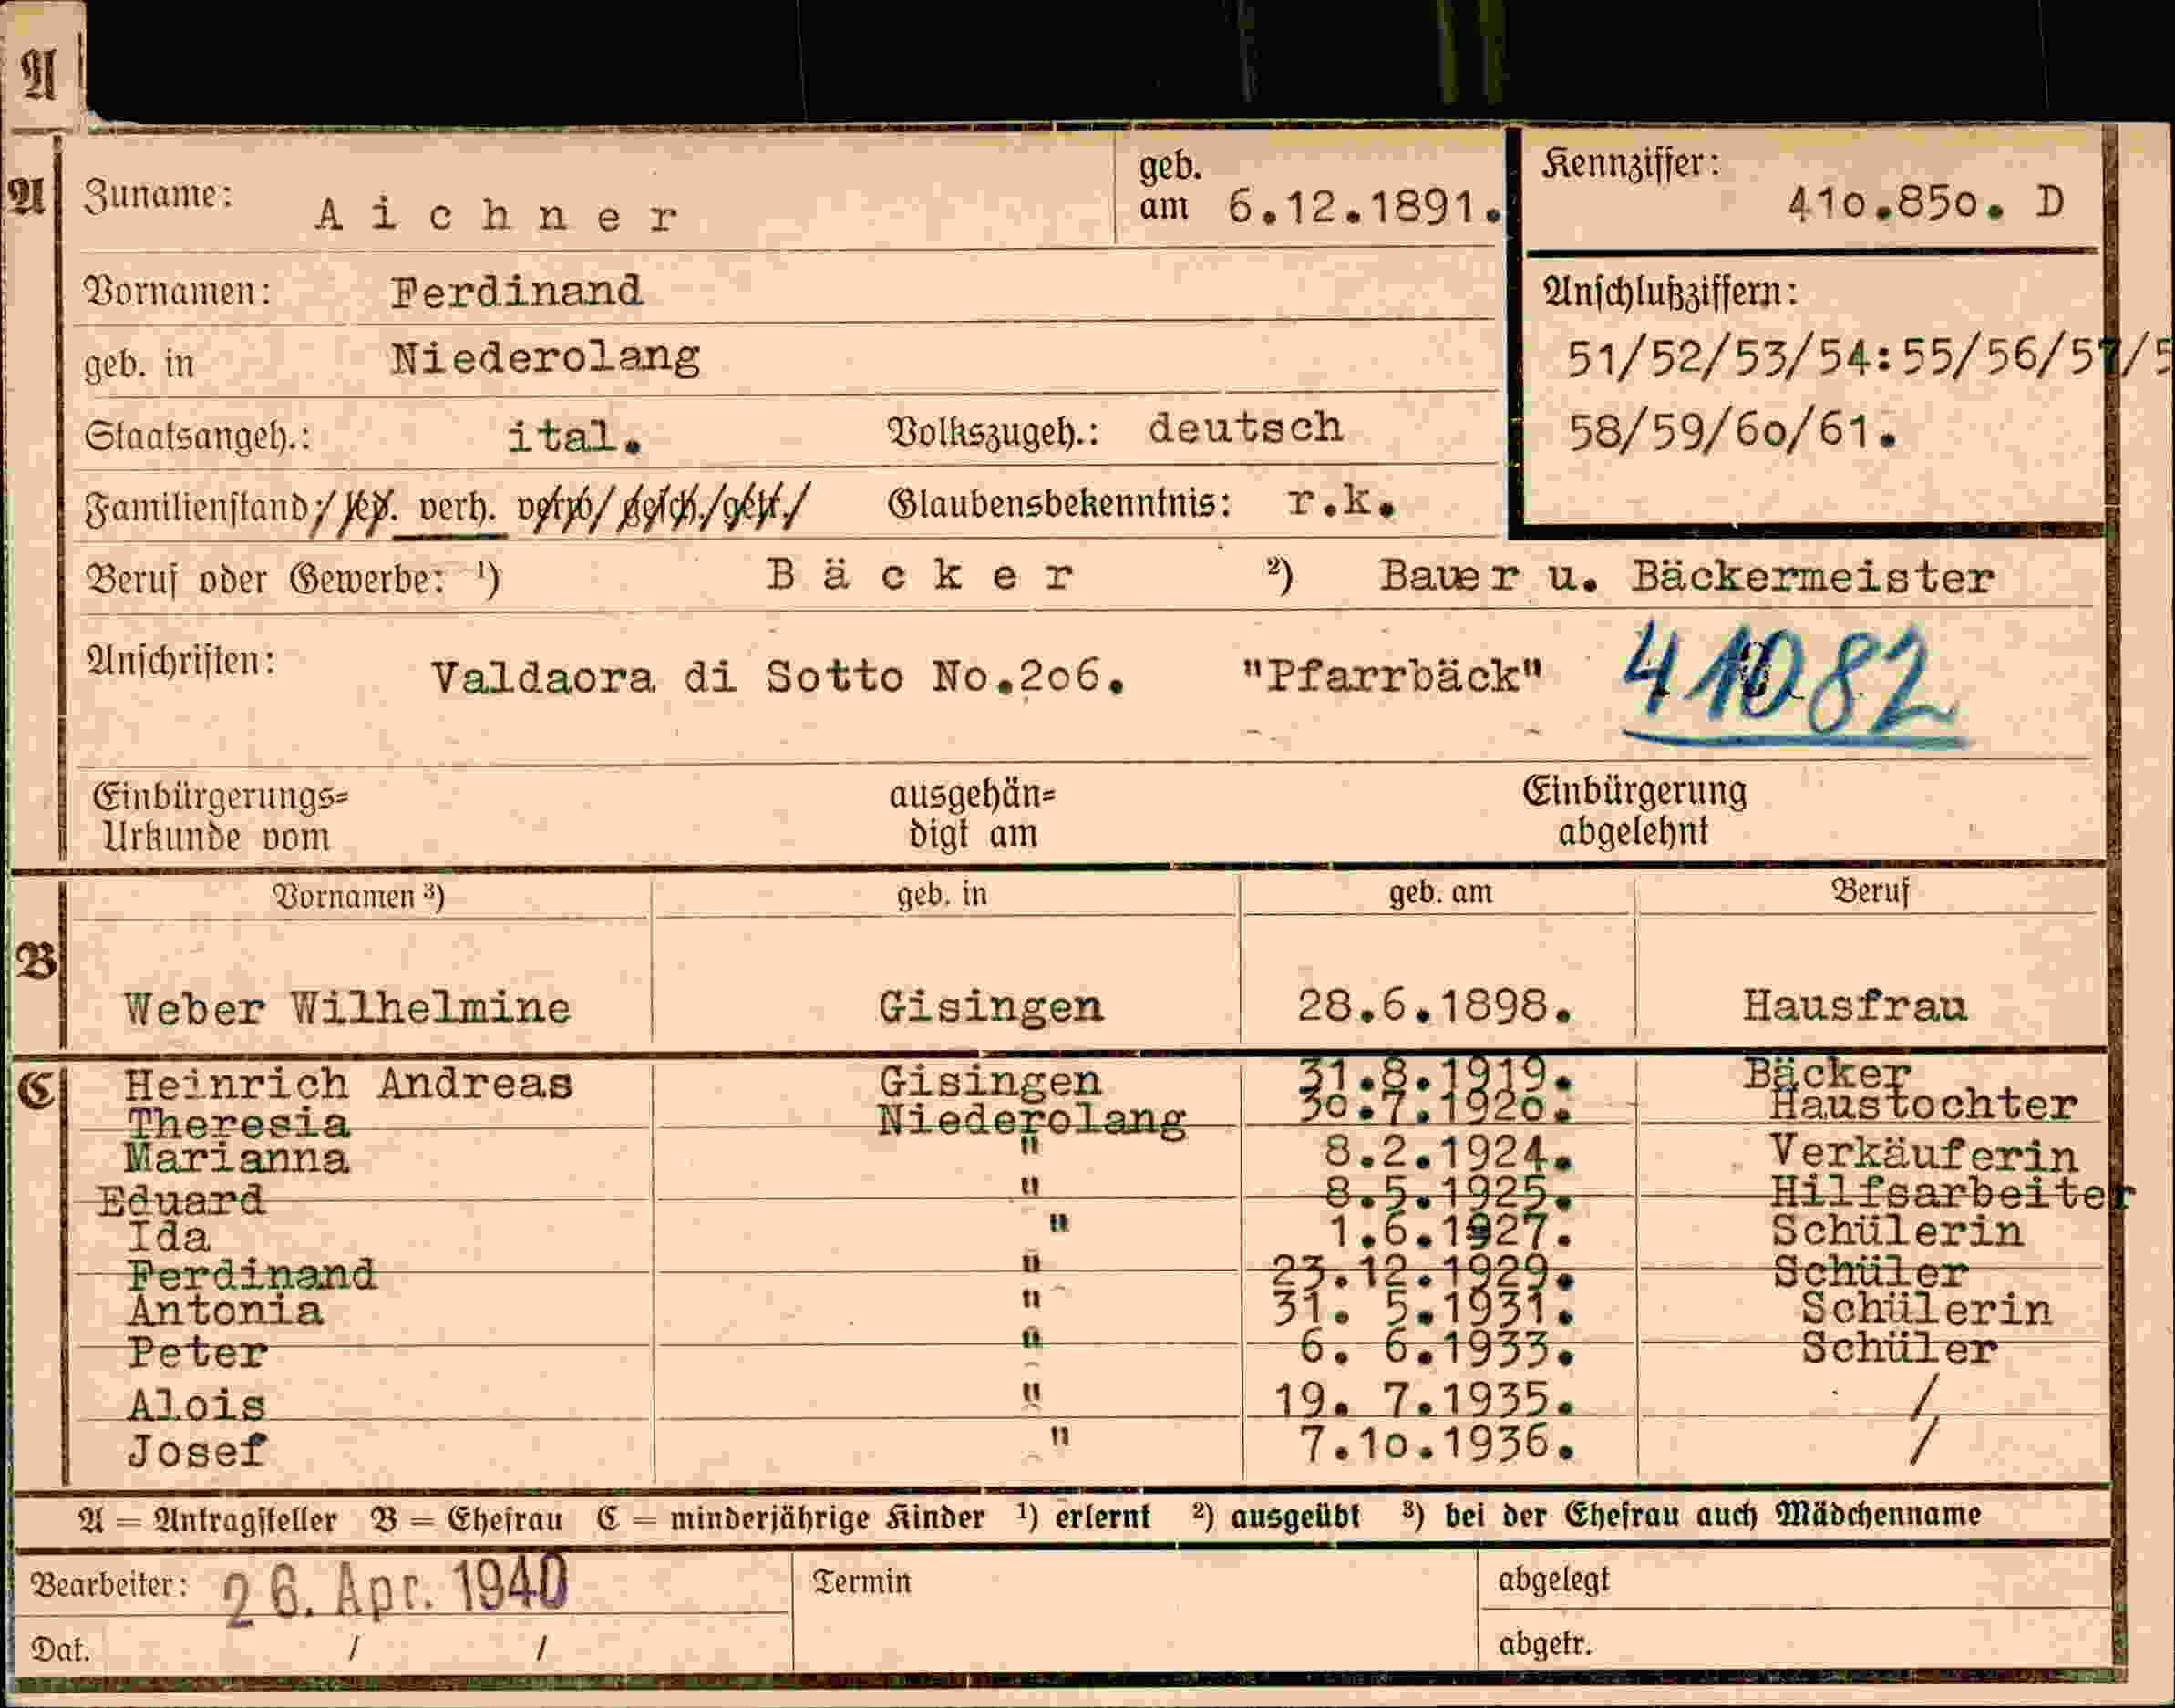 A
A Zuname: Aichner geb. am 6.12.1891. Kennziffer: 410.850. D
Vornamen: Ferdinand Anschlußziffern:
geb. in Niederolang 51/52/53/54:55/56/57/5
Staatsangeh.: ital. Volkszugeh.: deutsch 58/59/60/61.
Familienstand: led. verh. verw. gesch. getr. Glaubensbekenntnis: r.k.
Beruf oder Gewerbe: ¹) Bäcker ²) Bauer u. Bäckermeister
Anschriften: Valdaora di Sotto No.206. "Pfarrbäck" 41082
Einbürgerungs= Urkunde vom ausgehän= digt am Einbürgerung abgelehnt
Vornamen ³) geb. in geb. am Beruf
B Weber Wilhelmine Gisingen 28.6.1898. Hausfrau
C Heinrich Andreas Gisingen 31.8.1919. Bäcker
Theresia Niederolang 30.7.1920. Haustochter
Marianna " 8.2.1924. Verkäuferin
Eduard " 8.5.1925. Hilfsarbeiter
Ida " 1.6.1927. Schülerin
Ferdinand " 23.12.1929. Schüler
Antonia " 31. 5.1931. Schülerin
Peter " 6. 6.1933. Schüler
Alois " 19. 7.1935. /
Josef " 7.10.1936. /
A = Antragsteller B = Ehefrau C = minderjährige Kinder ¹) erlernt ²) ausgeübt ³) bei der Ehefrau auch Mädchenname
Bearbeiter: 26. Apr. 1940 Termin abgelegt
Dat. / / abgetr.